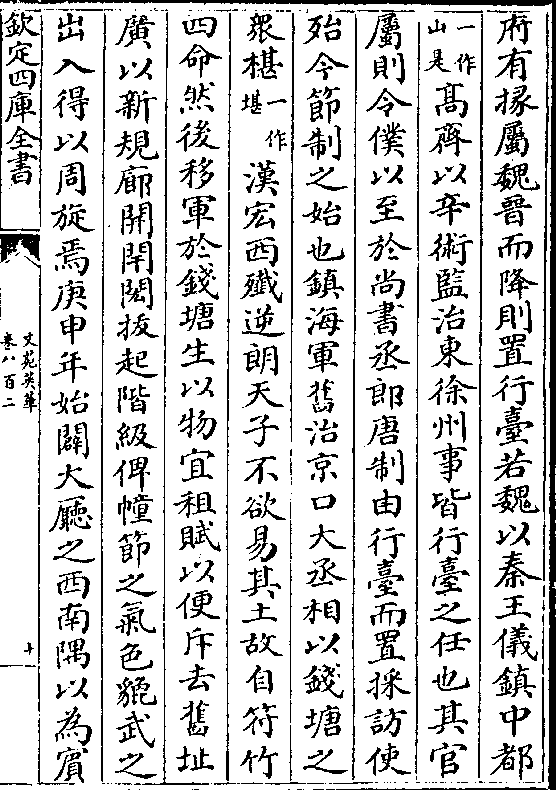 府有掾屬魏晉而降則置行臺若魏以秦王儀鎮中都
一作山是髙齊以辛術監治東徐州事皆行臺之任也其官
屬則令僕以至於尚書丞郎唐制由行臺而置採訪使
殆今節制之始也鎮海軍舊治京口大丞相以錢塘之
衆椹一作堪漢宏西殲逆朗天子不欲易其土故自符竹
四命然後移軍於錢塘生以物宜租賦以便斥去舊址
廣以新規廊開閈閎拔起階級俾幢節之氣色貔武之
出入得以周旋焉庚申年始闢大廳之西南隅以為賓
欽定四庫全書
文苑英華
卷八百二
十